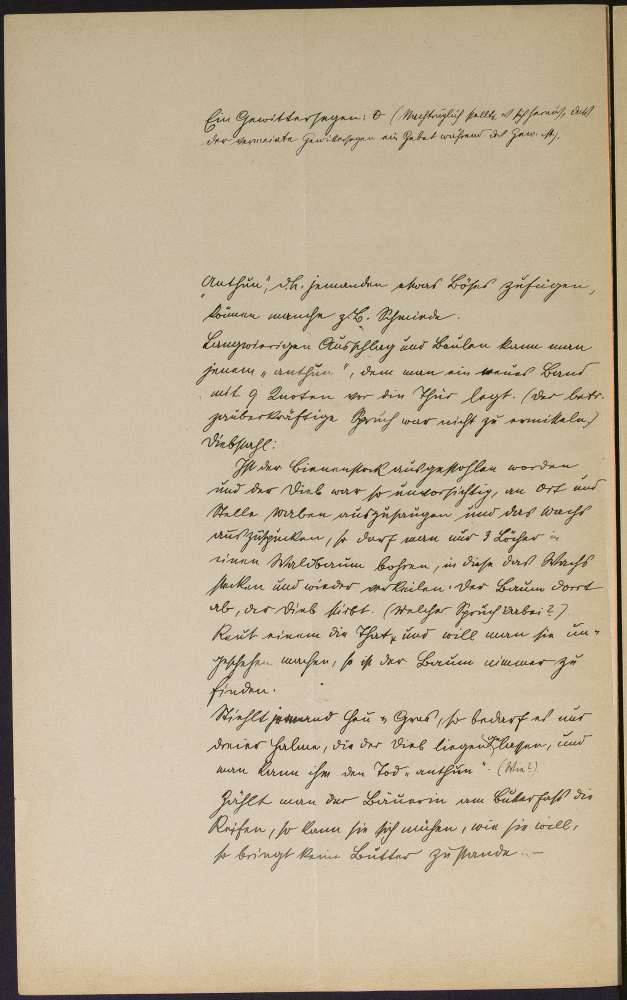 Ein Gewittersegen: 0 (Nachträglich stellte es sich heraus, dass
der vermeinte Gewittersegen ein Gebet während des Gew. ist).
„Anthun“, d.h. jemanden etwas Böses zufügen,
können manche z.B. Schmiede.
Langwierigen Ausschlag und Beulen kann man
jenem „anthun“, dem man ein neues Band
mit 9 Knoten vor die Thür legt. (Der betr.
zauberkräftige Spruch war nicht zu ermitteln.)
Diebstahl:
Ist der Bienenstock ausgestohlen worden
und der Dieb war so unvorsichtig, an Ort und
Stelle Waben auszusaugen und das Wachs
auszuspucken, so darf man nur 3 Löcher in
einen Waldbaum bohren, in diese das Wachs
stecken und wieder verkeilen: Der Baum dorrt
ab, der Dieb stirbt. (Welcher Spruch dabei?)
Reut einem die That, und will man sie un-
geschehen machen, so ist der Baum nimmer zu
finden.
Stiehlt jemand Heu u Gras, so bedarf es nur
dreier Halme, die der Dieb liegen lassen, und
man kann ihm den Tod „anthun“. (Wie?)
Zählt man der Bäuerin am Butterfass die
Reifen, so kann sie sich mühen, wie sie will,
sie bringt keine Butter zustande. –